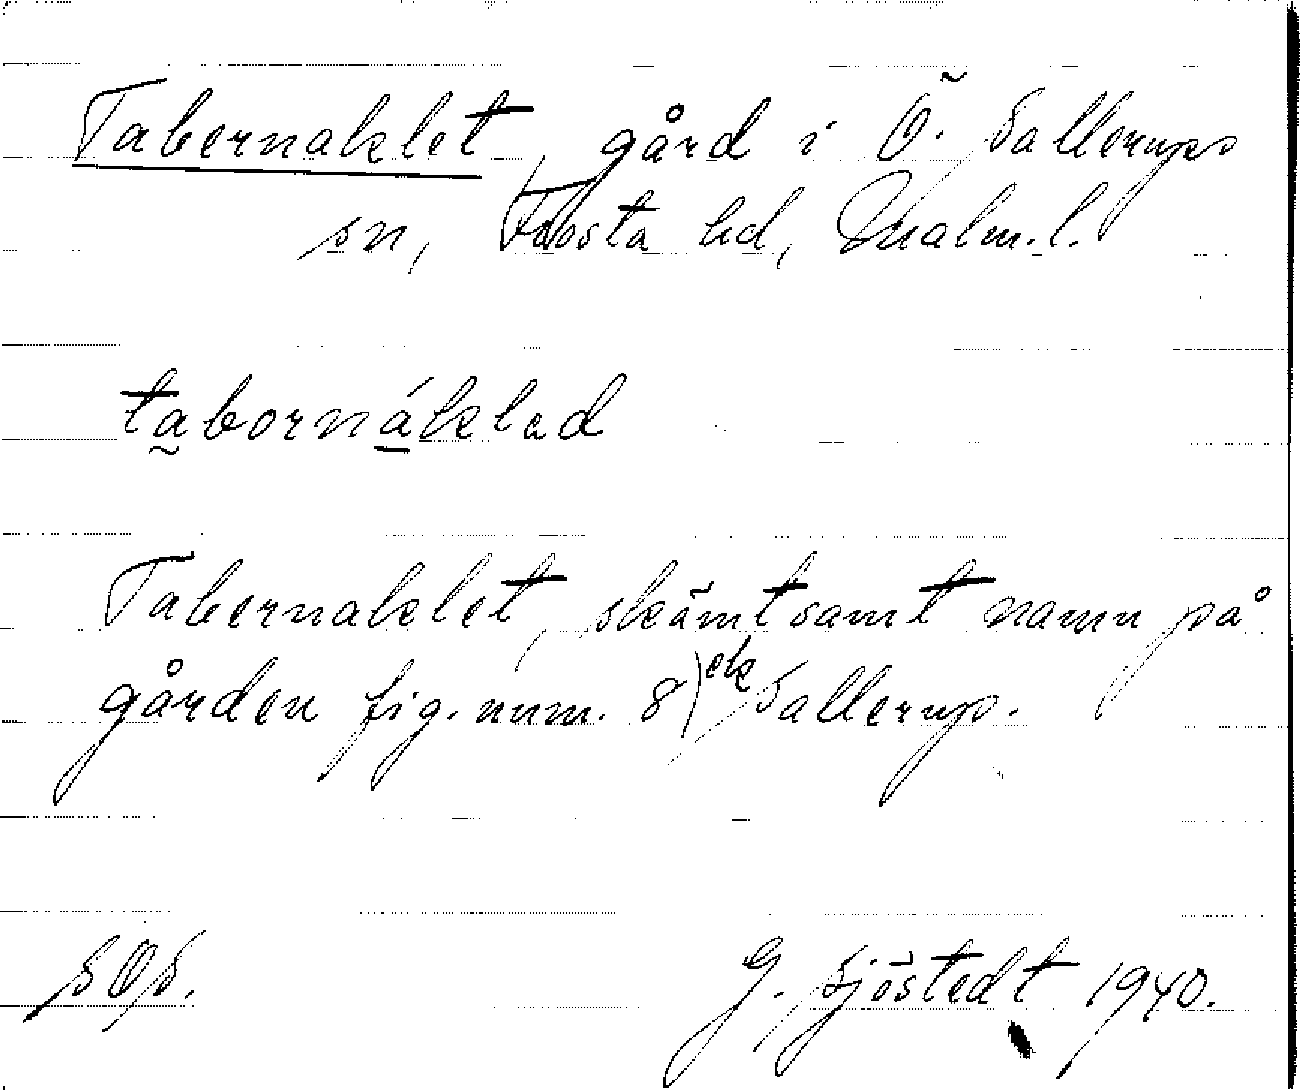 Tabernaklet, gård i Ö. Sallerups
sn, Frosta hd, Malm.l.
tabornákled
Tabernaklet, skämtsamt namn på
gården fig. num. 8) ek Sallerup.
SOS.
G. Sjöstedt 1940.